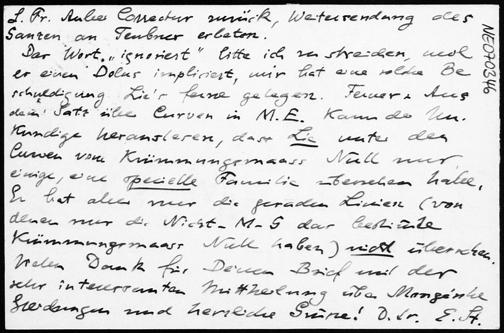 L. Fr. Anbei Correctur zurück, Weitersendung des
Ganzen an Teubner erbeten.
Das Wort "ignoriert" bitte ich zu streichen, weil
er einen Dolus impliciert, mir hat eine solche Be
schuldigung Lie's ferne gelegen. Ferner: Aus
dem Satz über Curven in M.E. kann der Un
kundige herauslesen, dass Lie unter den
Curven vom Krümmungsmaass Null nur
einige, eine specielle Familie übersehen habe.
Er hat aber nur die geraden Linien (von
denen nur die Nicht-M-G das
Krümmungsmaass Null haben) nicht übersehen.
Vielen Dank für Deinen Brief und der
sehr interessanten Mittheilung über Monge'sche
Gleichungen und herzliche Grüsse! D. tr. E. St.
NEO70346